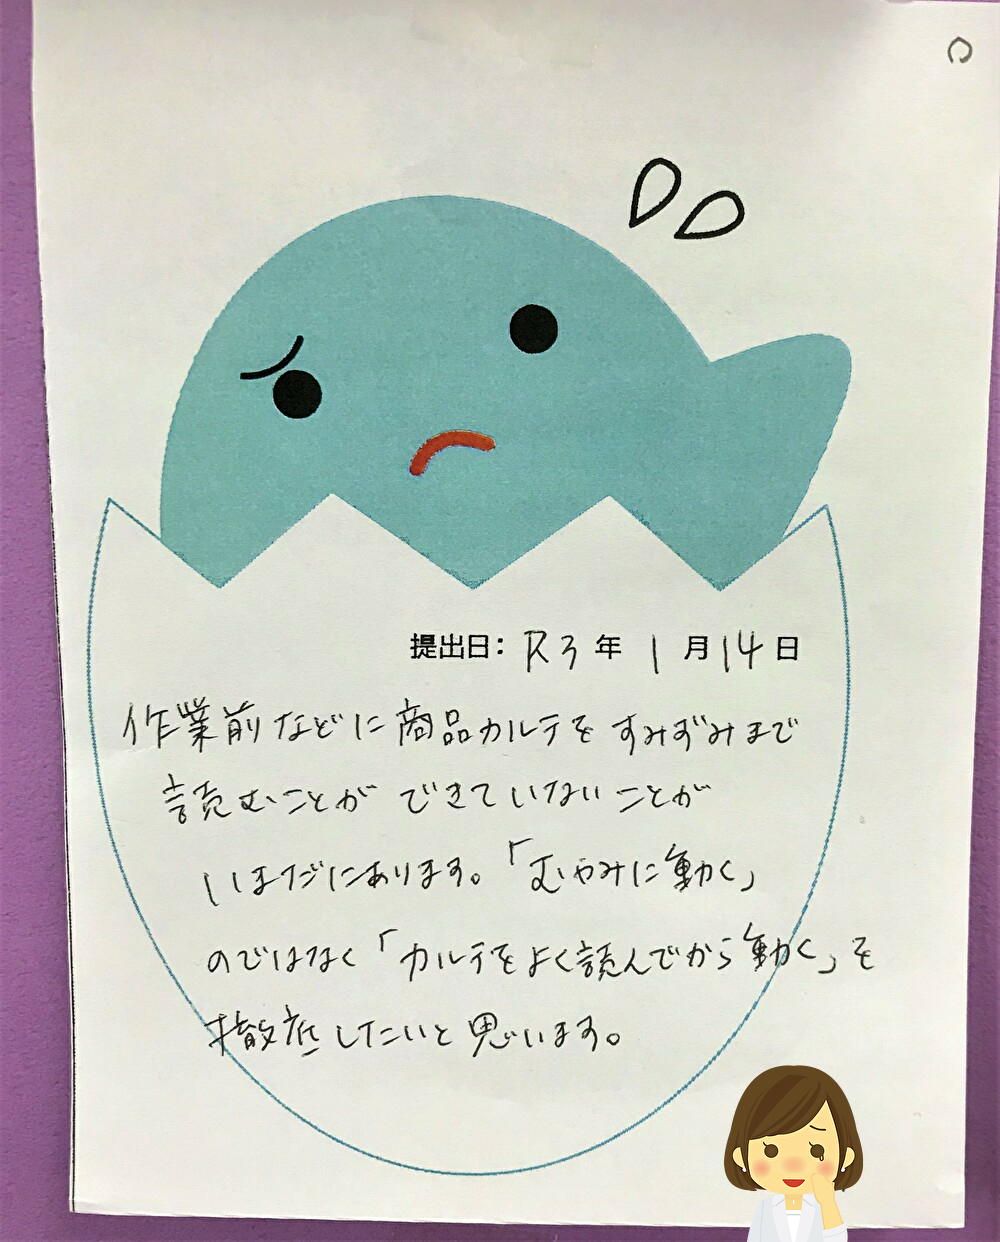 提出日: R3年 1月14日
作業前などに商品カルテをすみずみまで
読むことができていないことが
いまだにあります。「むやみに動く」
のではなく「カルテをよく読んでから動く」を
徹底したいと思います。